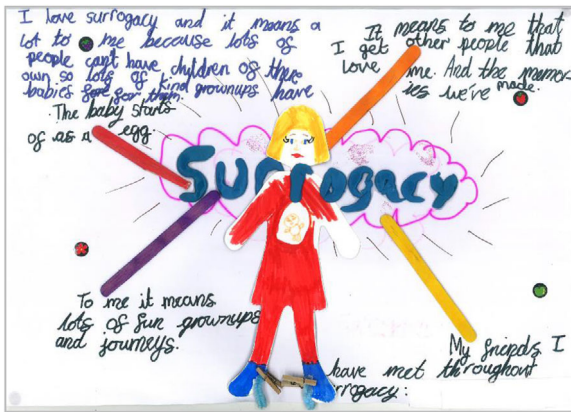 I love surrogacy and it means a
lot to me because lots of
people cant have children of there
own so lots of kind grownups have
babies for them.
The baby starts
of as a egg
It means to me that
I get other people that
love me. And the memor
ies we've made.
Surrogacy
To me it means
lots of fun grownups
and journeys.
My friends I
have met throughout
rrogacy: